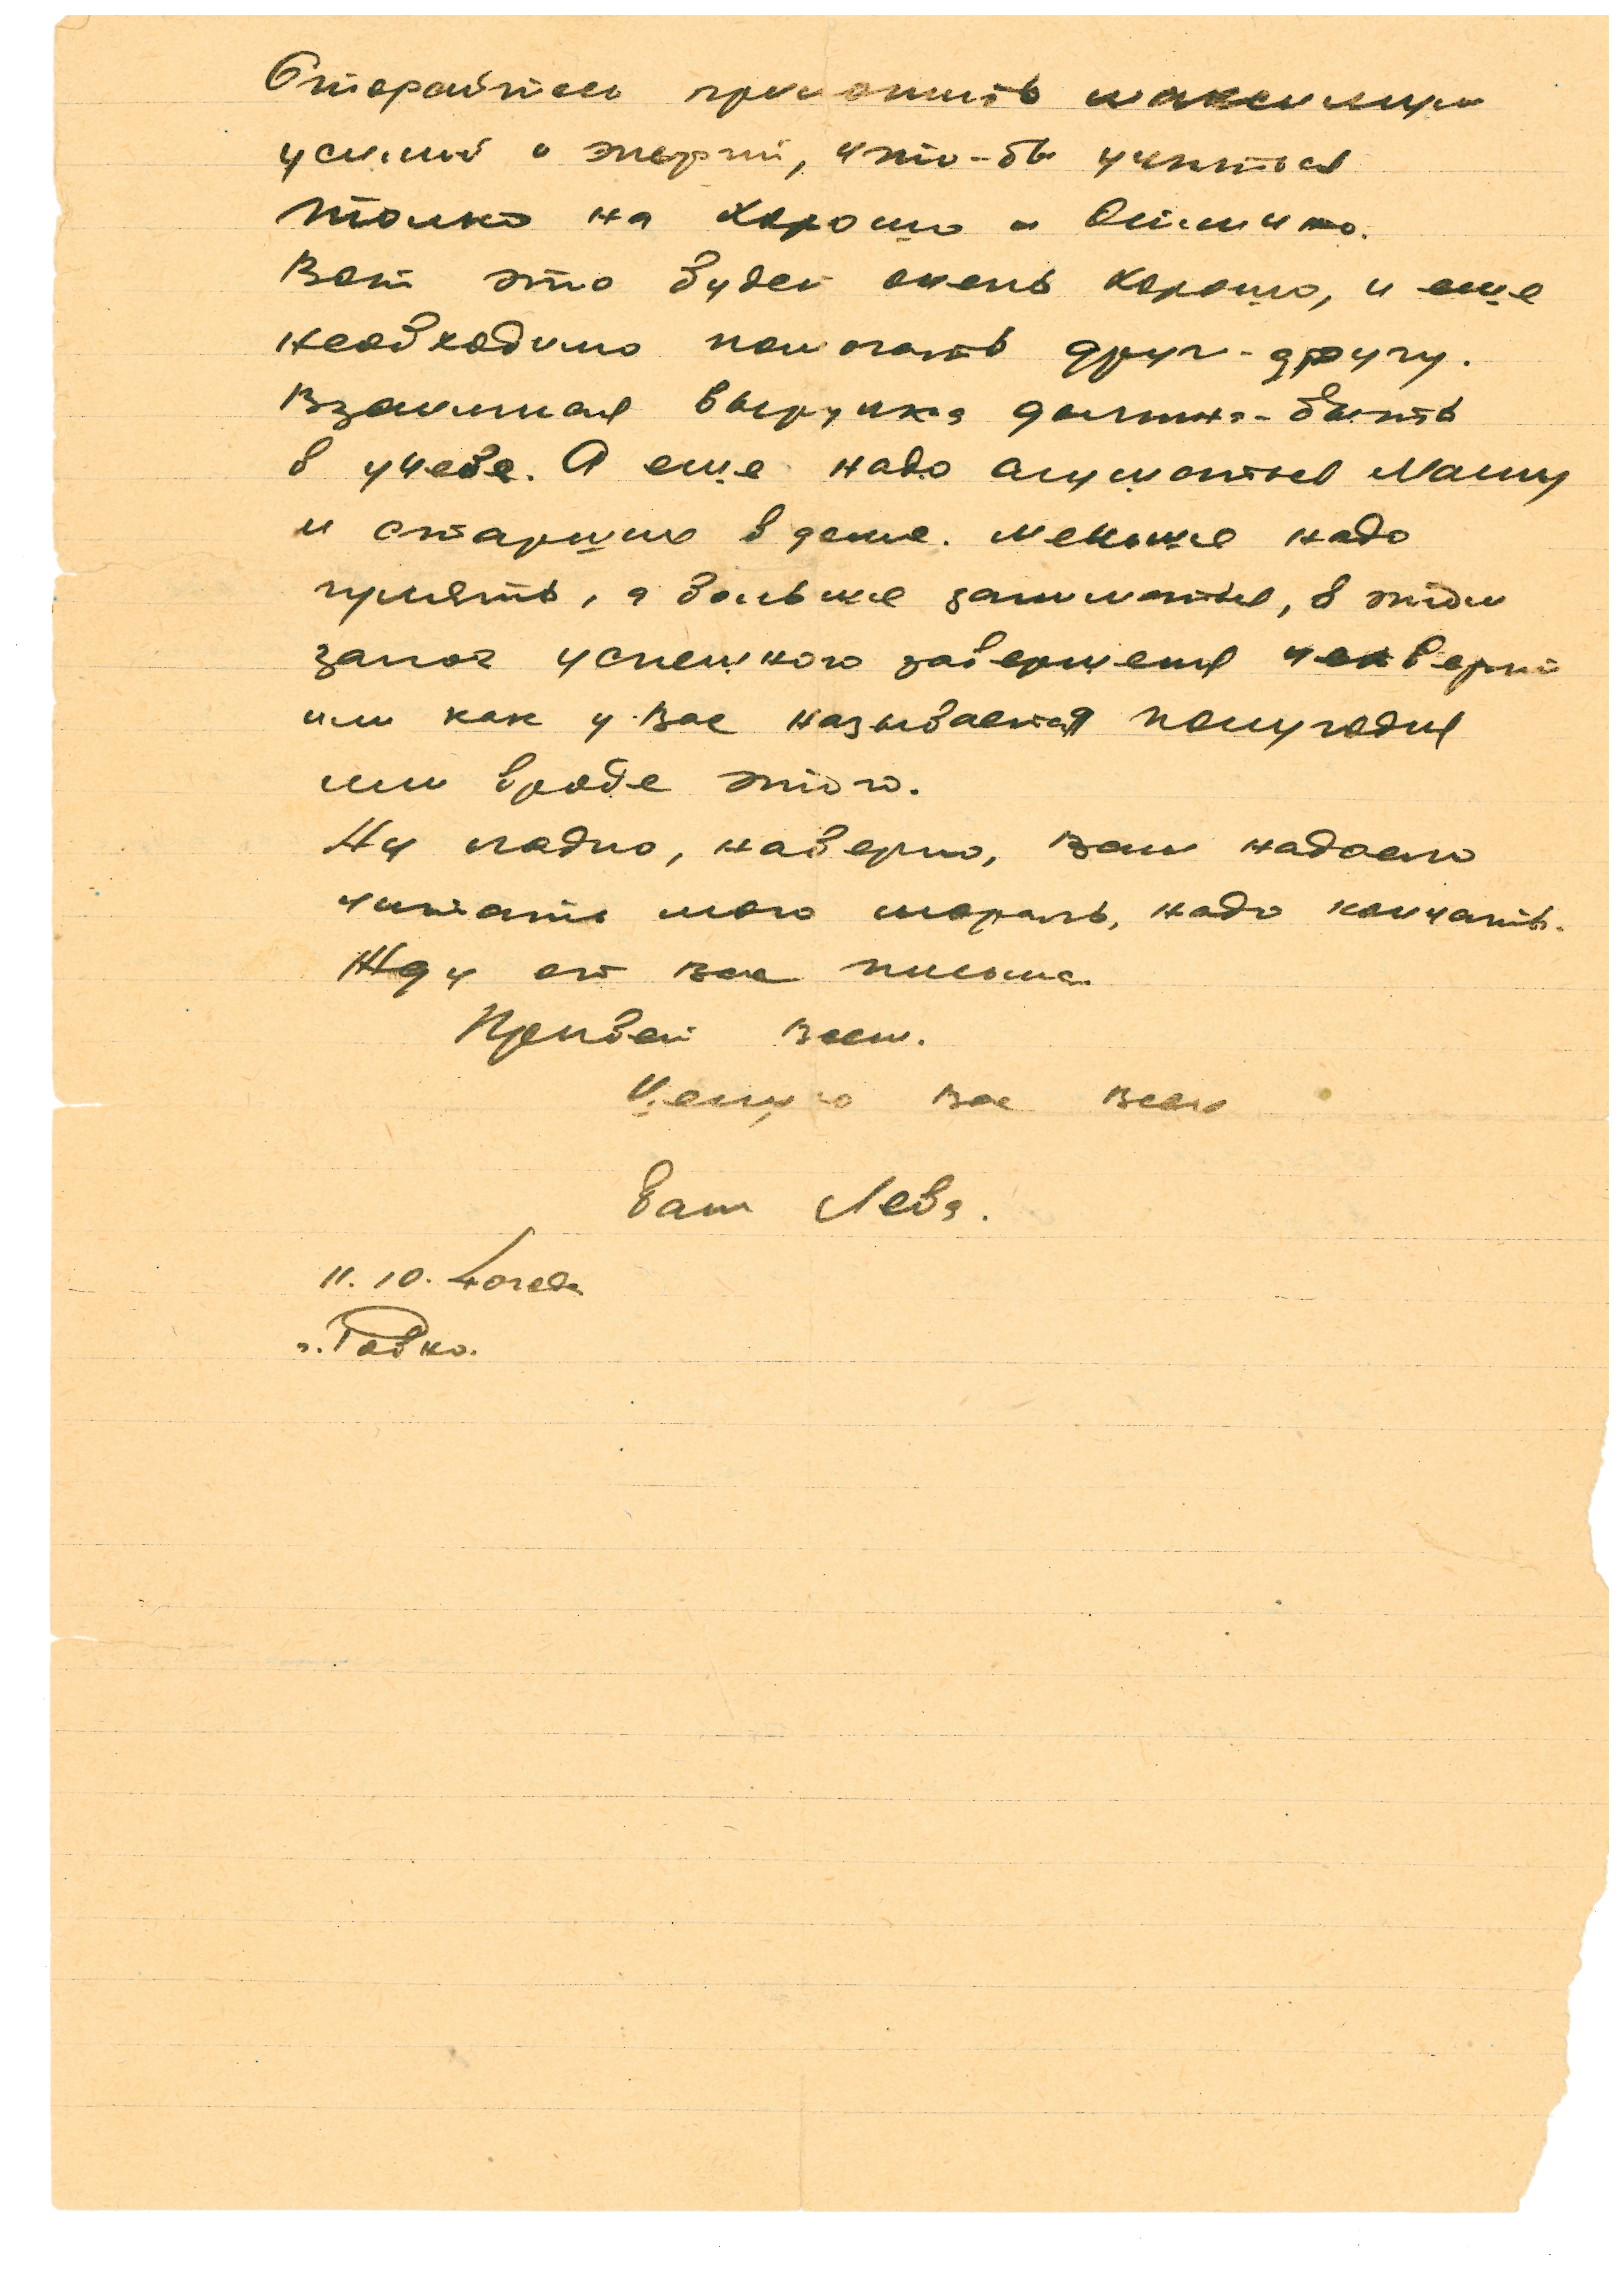 Старайтесь приложить максимум
усилий и энергии, что-бы учиться
только на хорошо и отлично.
Вот это будет очень хорошо, и еще
необходимо помогать друг-другу.
Взаимная выручка должна-быть
в учебе. А еще надо слушаться Маму
и старших в доме. Меньше надо
гулять, а больше заниматься, в этом
залог успешного завершения четверти
или как у Вас называется полугодия
или вроде этого.
Ну ладно, наверно, Вам надоело
читать мою мораль, надо кончать.
Жду от Вас письма.
Привет Всем.
Целую Вас Всех
Ваш Лева.
11.10. 40года